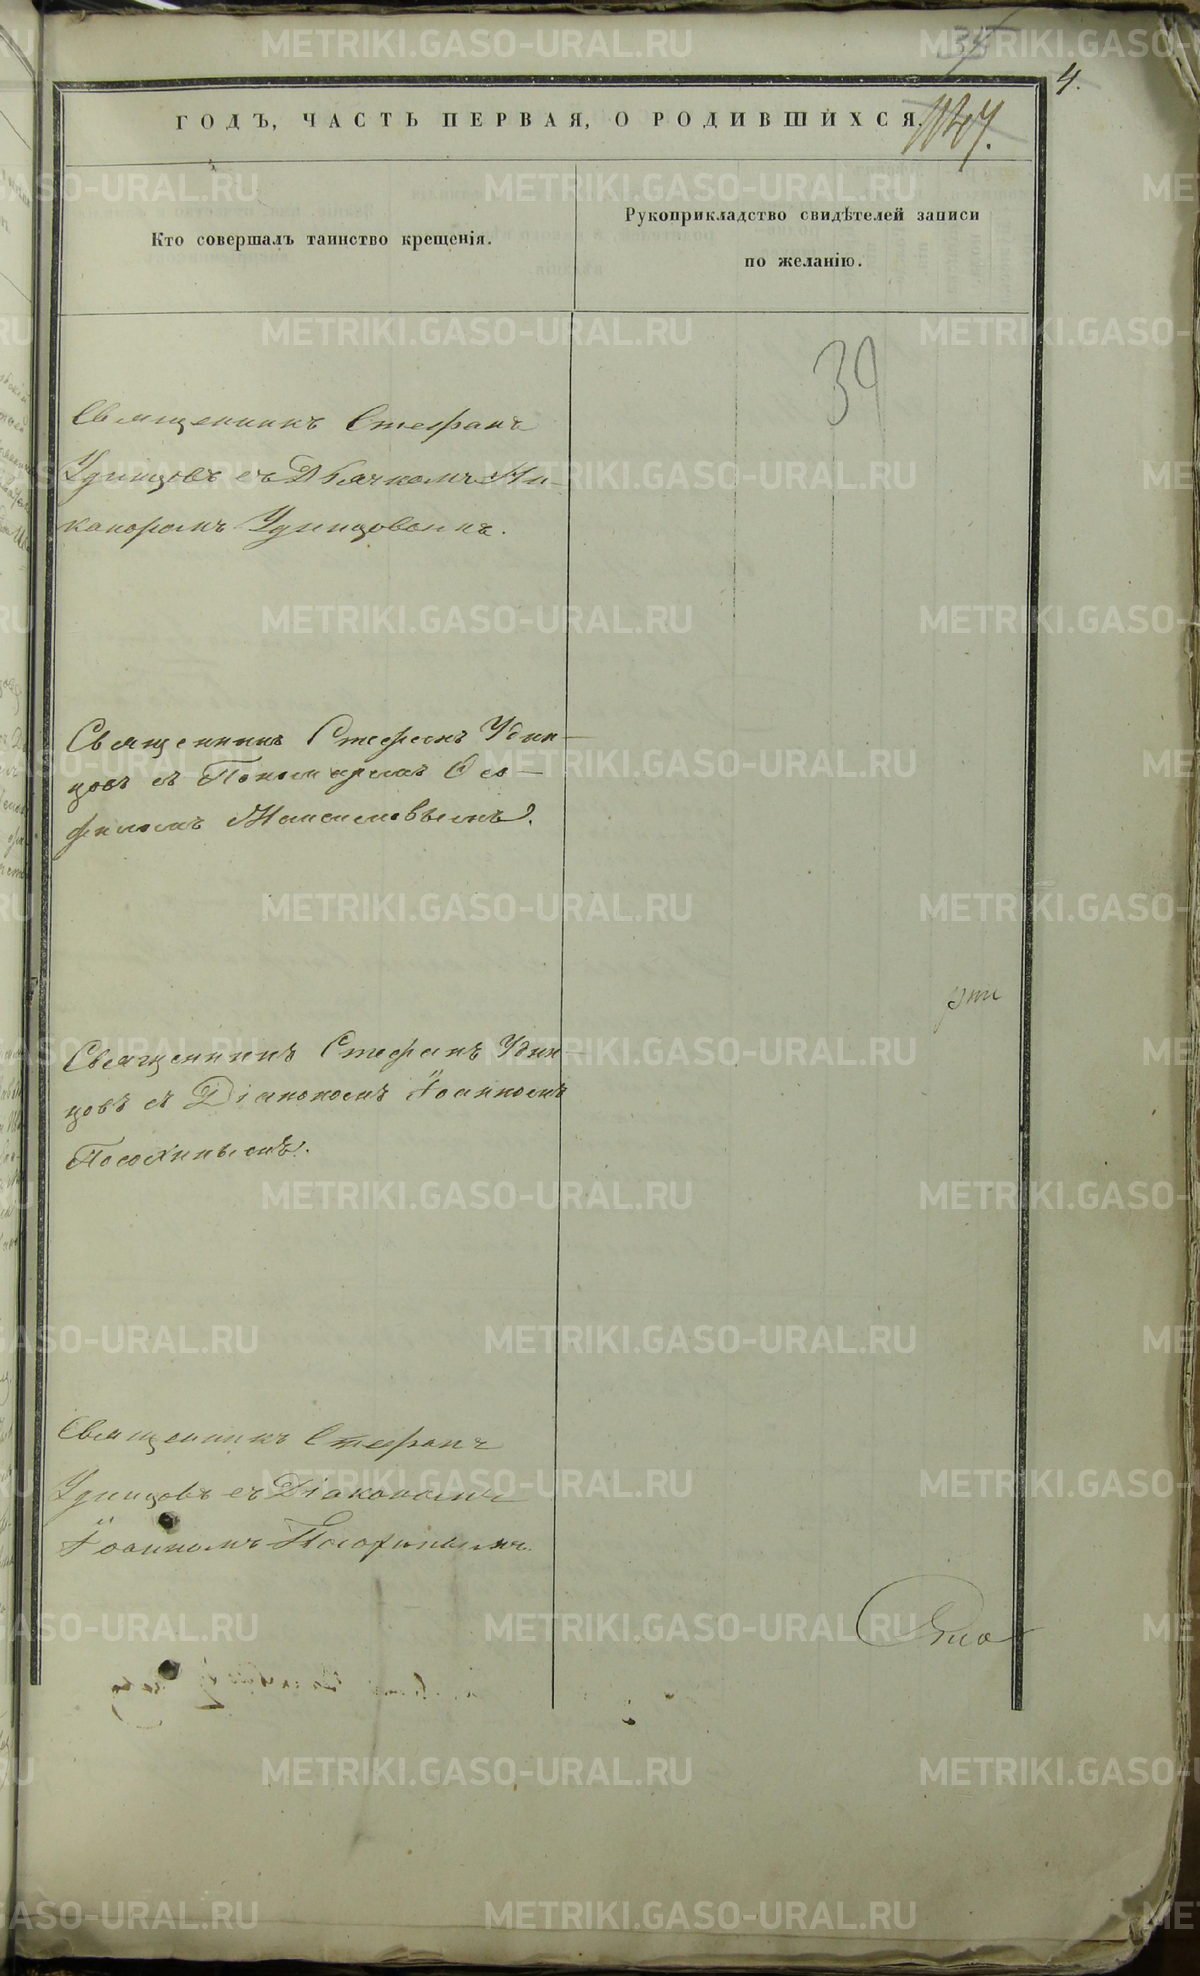 4.
ГОДЪ, ЧАСТЬ ПЕРВАЯ, О РОДИВШИХСЯ.
Кто совершалъ таинство крещенія.
Рукоприкладство свидѣтелей записи
по желанію.
39
Священникъ Стефанъ
Удинцовъ съ Дьячкомъ Ни-
каноромъ Удинцовымъ.
Священникъ Стефанъ Удин-
цовъ съ Пономаремъ Фео-
филомъ
Священникъ Стефанъ Удин-
цовъ съ Діакономъ Іоанномъ
Посохинымъ.
Священникъ Стефанъ
Удинцовъ съ Діакономъ
Іоанномъ Посохинымъ.
METRIKI.GASO-URAL.RU